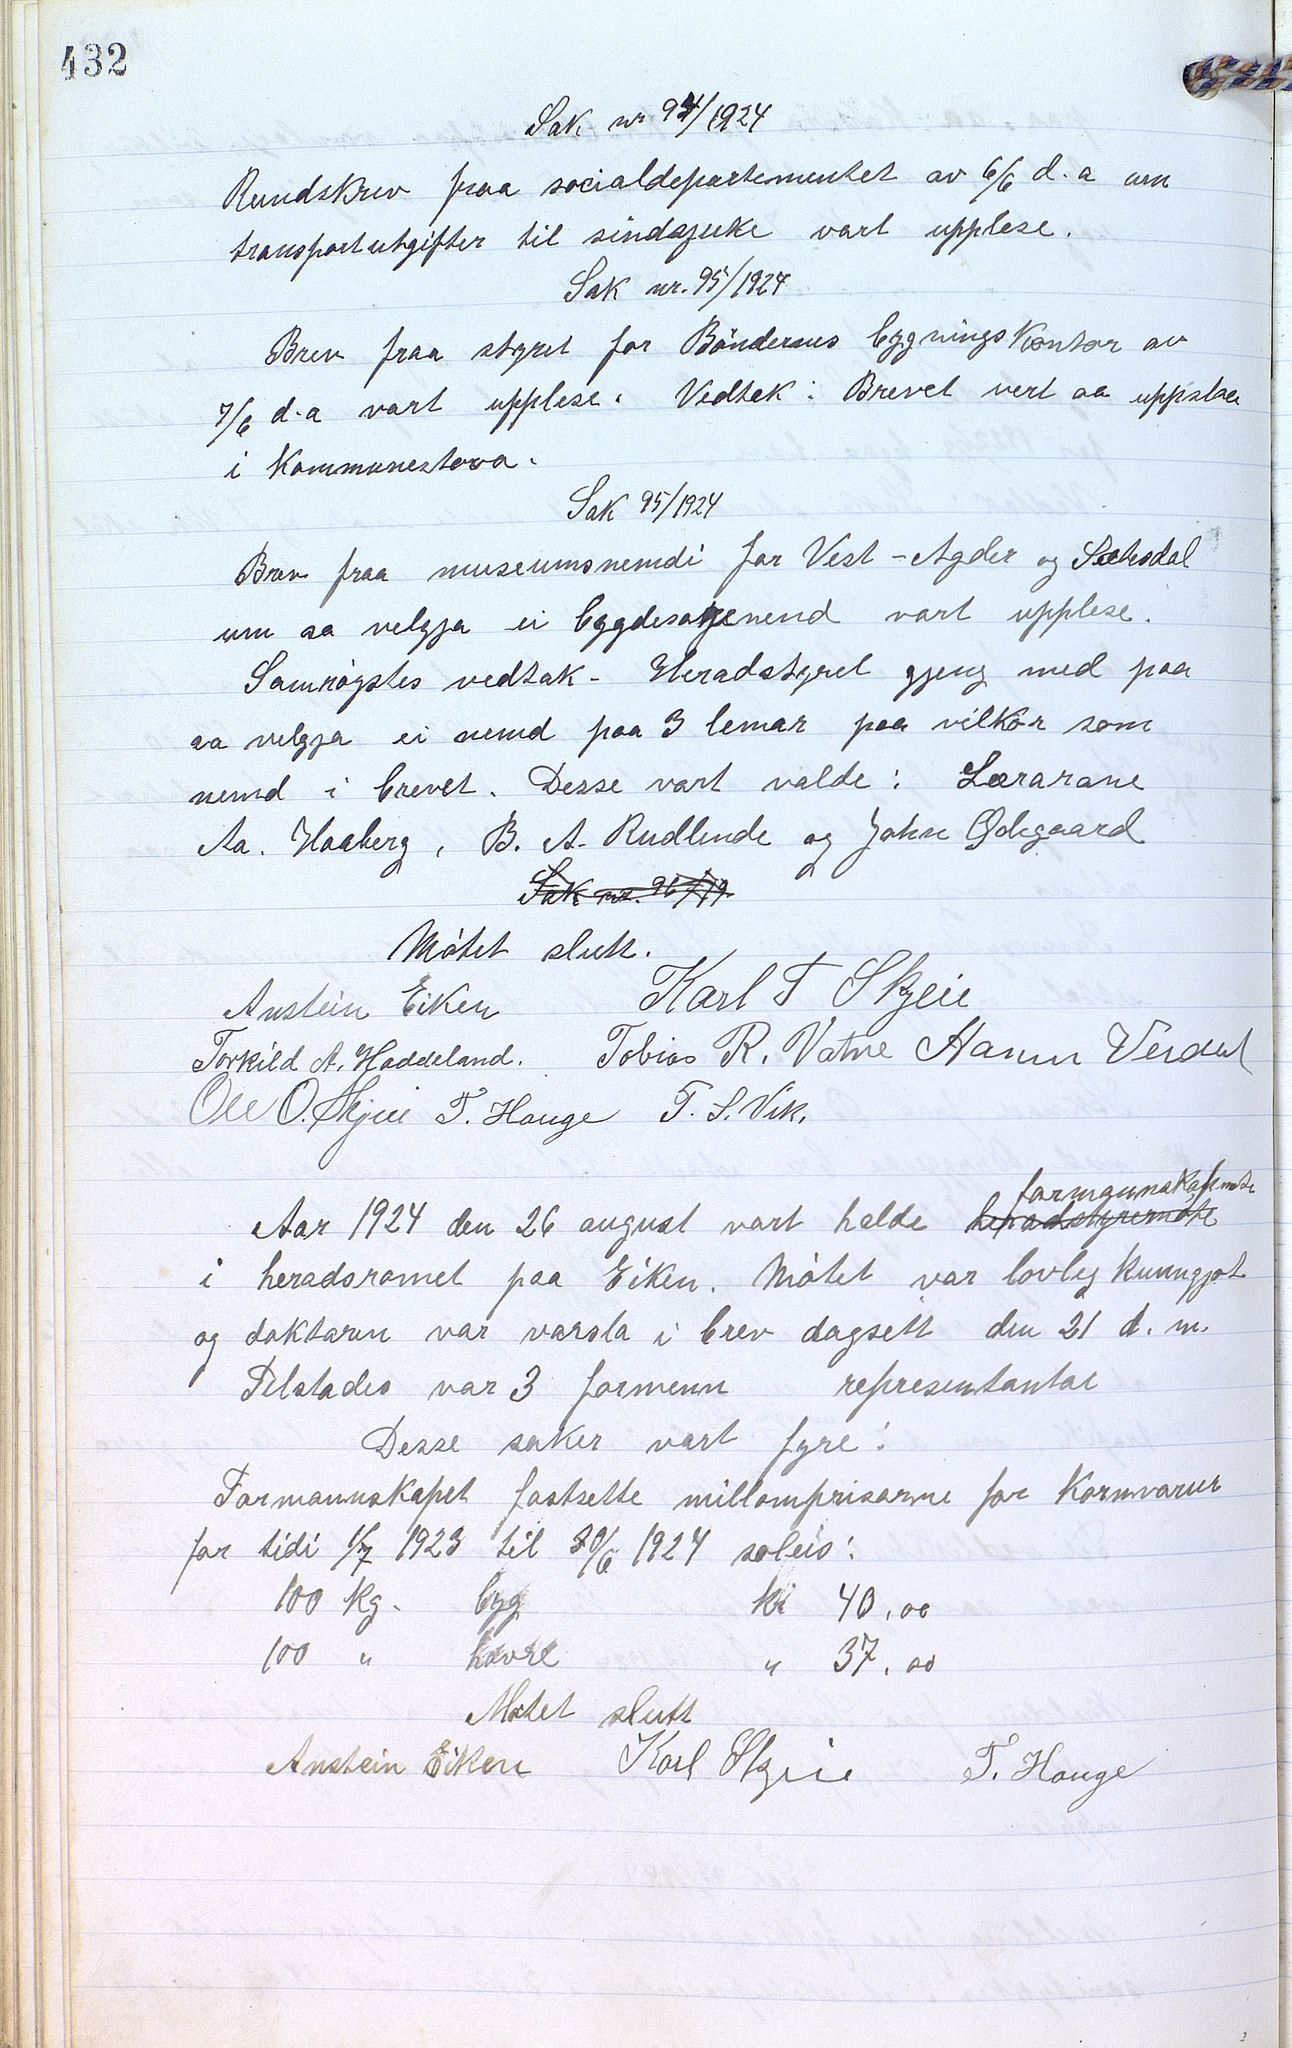 432
Sak nr 94/1924
Rundskriv fraa socialdepartementet av 6/6 d.a um
transportutgifter til sindsjuke vart upplese.
Sak nr. 95/1924
Brev fraa styret for Böndernes bygningskontor av
7/6 d.a vart upplese. Vedtak: Brevet vert aa uppslaa
i Kommunestova.
Sak 95/1924
Brev fraa museumsnemdi for Vest-Agder og Sætesdal
um aa velgja ei bygdesogenemd vart upplese.
Samrøystes vedtak - Heradstyret gjeng med paa
aa velgja ei nemd paa 3 lemar paa vilkår som
nemd i brevet. Desse vart valde: Lærarane
Aa. Haaberg, B. A. Rudlende og John Ødegaard
Sak nr. 96/19
Mötet slutt.
Anstein Eiken Karl T Skjeie
Torkild A. Haddeland. Tobias R. Vatne Hanun Verdal
Ole O. Skjeie T. Hauge T. S. Vik.
formannskapsmöte
Aar 1924 den 26 august vart helde heradstyremöte
i heradsromet paa Eiken. Mötet var lovleg kunngjot
og doktaren var varsla i brev dagsett den 21 d. m.
Tilstades var 3 formenn representantar
Desse saker vart fyre:
Formannskapet fastsette millomprisarne for kornvarur
for tidi 1/7 1923 til 30/6 1924 soleis:
100 kg. byg kr 40,00
100 " havre " 37,00
Møtet slutt
Anstein Eiken Karl Skjeie T. Hauge